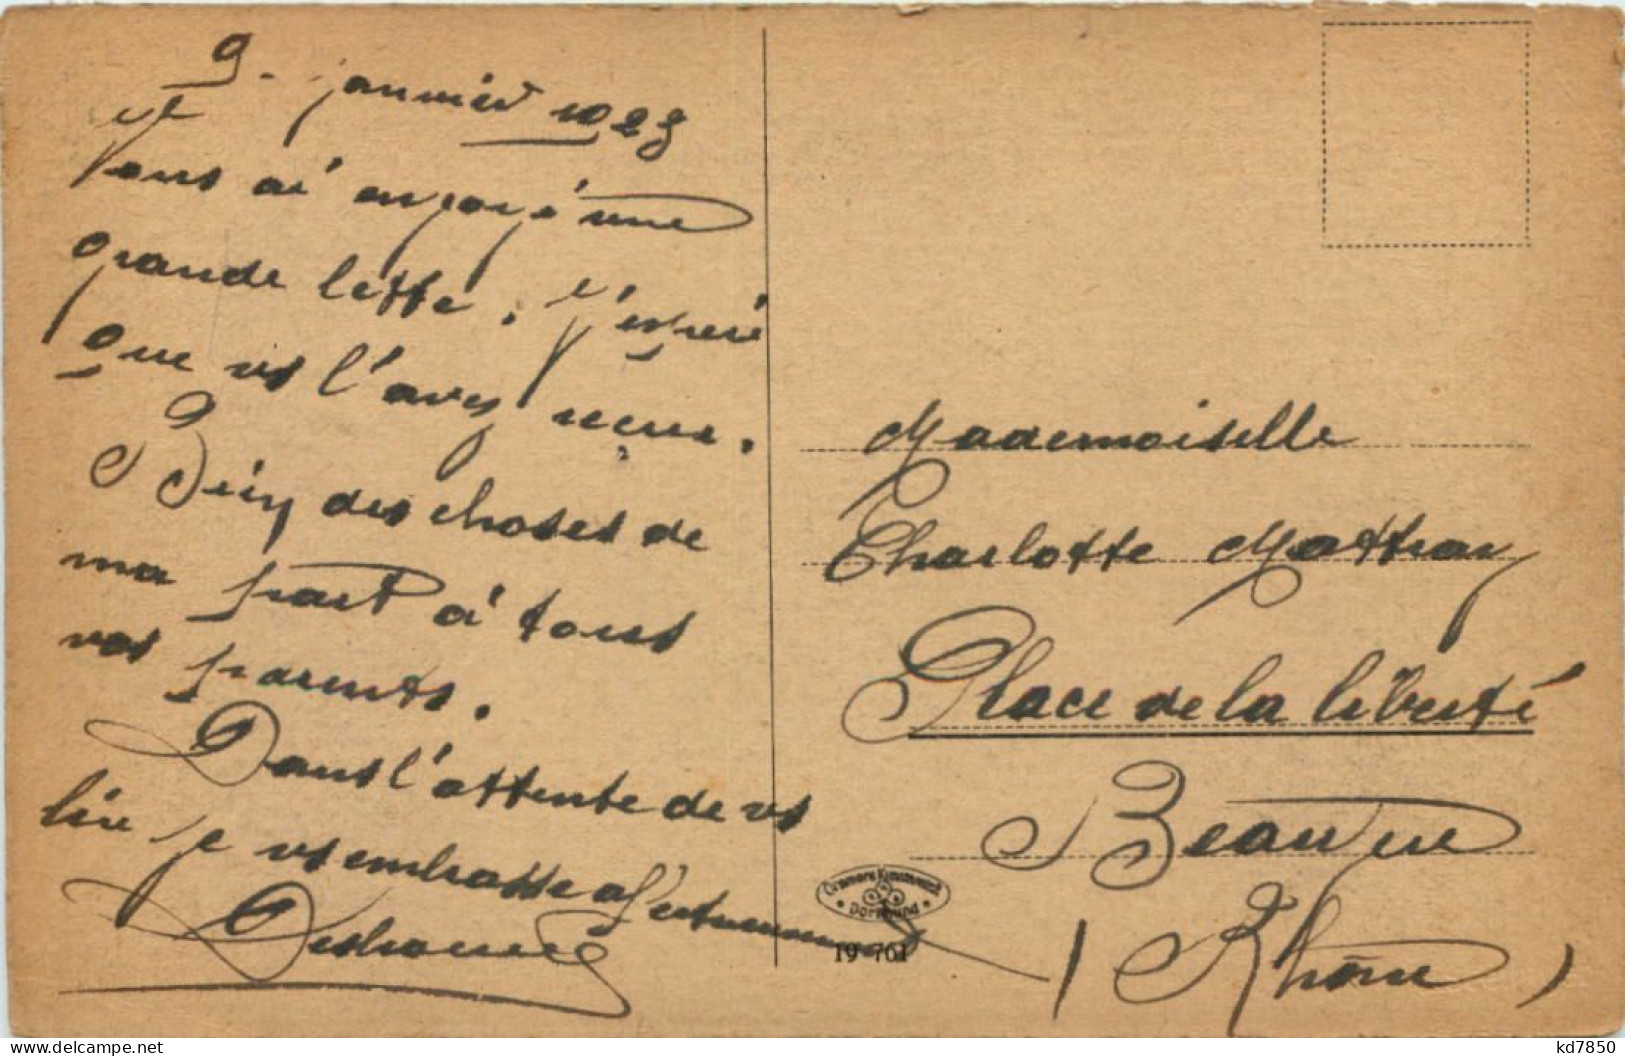 9. janvier 1923
Je
vous ai envoyé une
grande lettre. J'espère
que vs l'avez reçue.
Bien des choses de
ma part à tous
vos parents.
Dans l'attente de vs
lire je vs embrasse affectueusement
Mademoiselle
Charlotte Mattray
Place de la liberté
Beaujeu
(Rhône)
Cramers Kunstanstalt
Dortmund
19 761
kd7850
delcampe.net